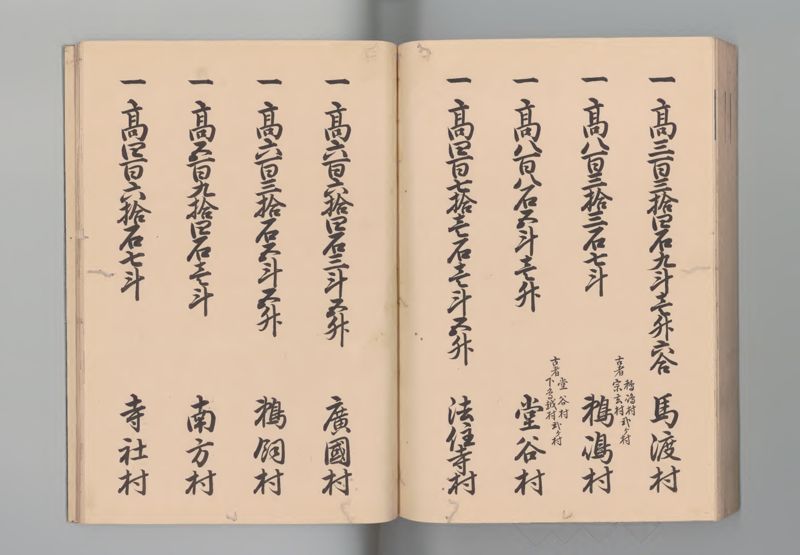 一 高三百三拾四石九斗壱升六合 馬渡村
一 高八百三拾三石七斗 鵜嶋村
古者 鵜嶋村 宗玄村 弐ヶ村
一 高八百八石五斗壱升 堂谷村
古者 堂谷村 下村 弐ヶ村
一 高四百七拾壱石壱斗五升 法住寺村
一 高六百六拾四石三斗五升 廣國村
一 高六百三拾石五斗五升 鵜飼村
一 高五百九拾四石壱斗 南方村
一 高四百六拾石七斗 寺社村